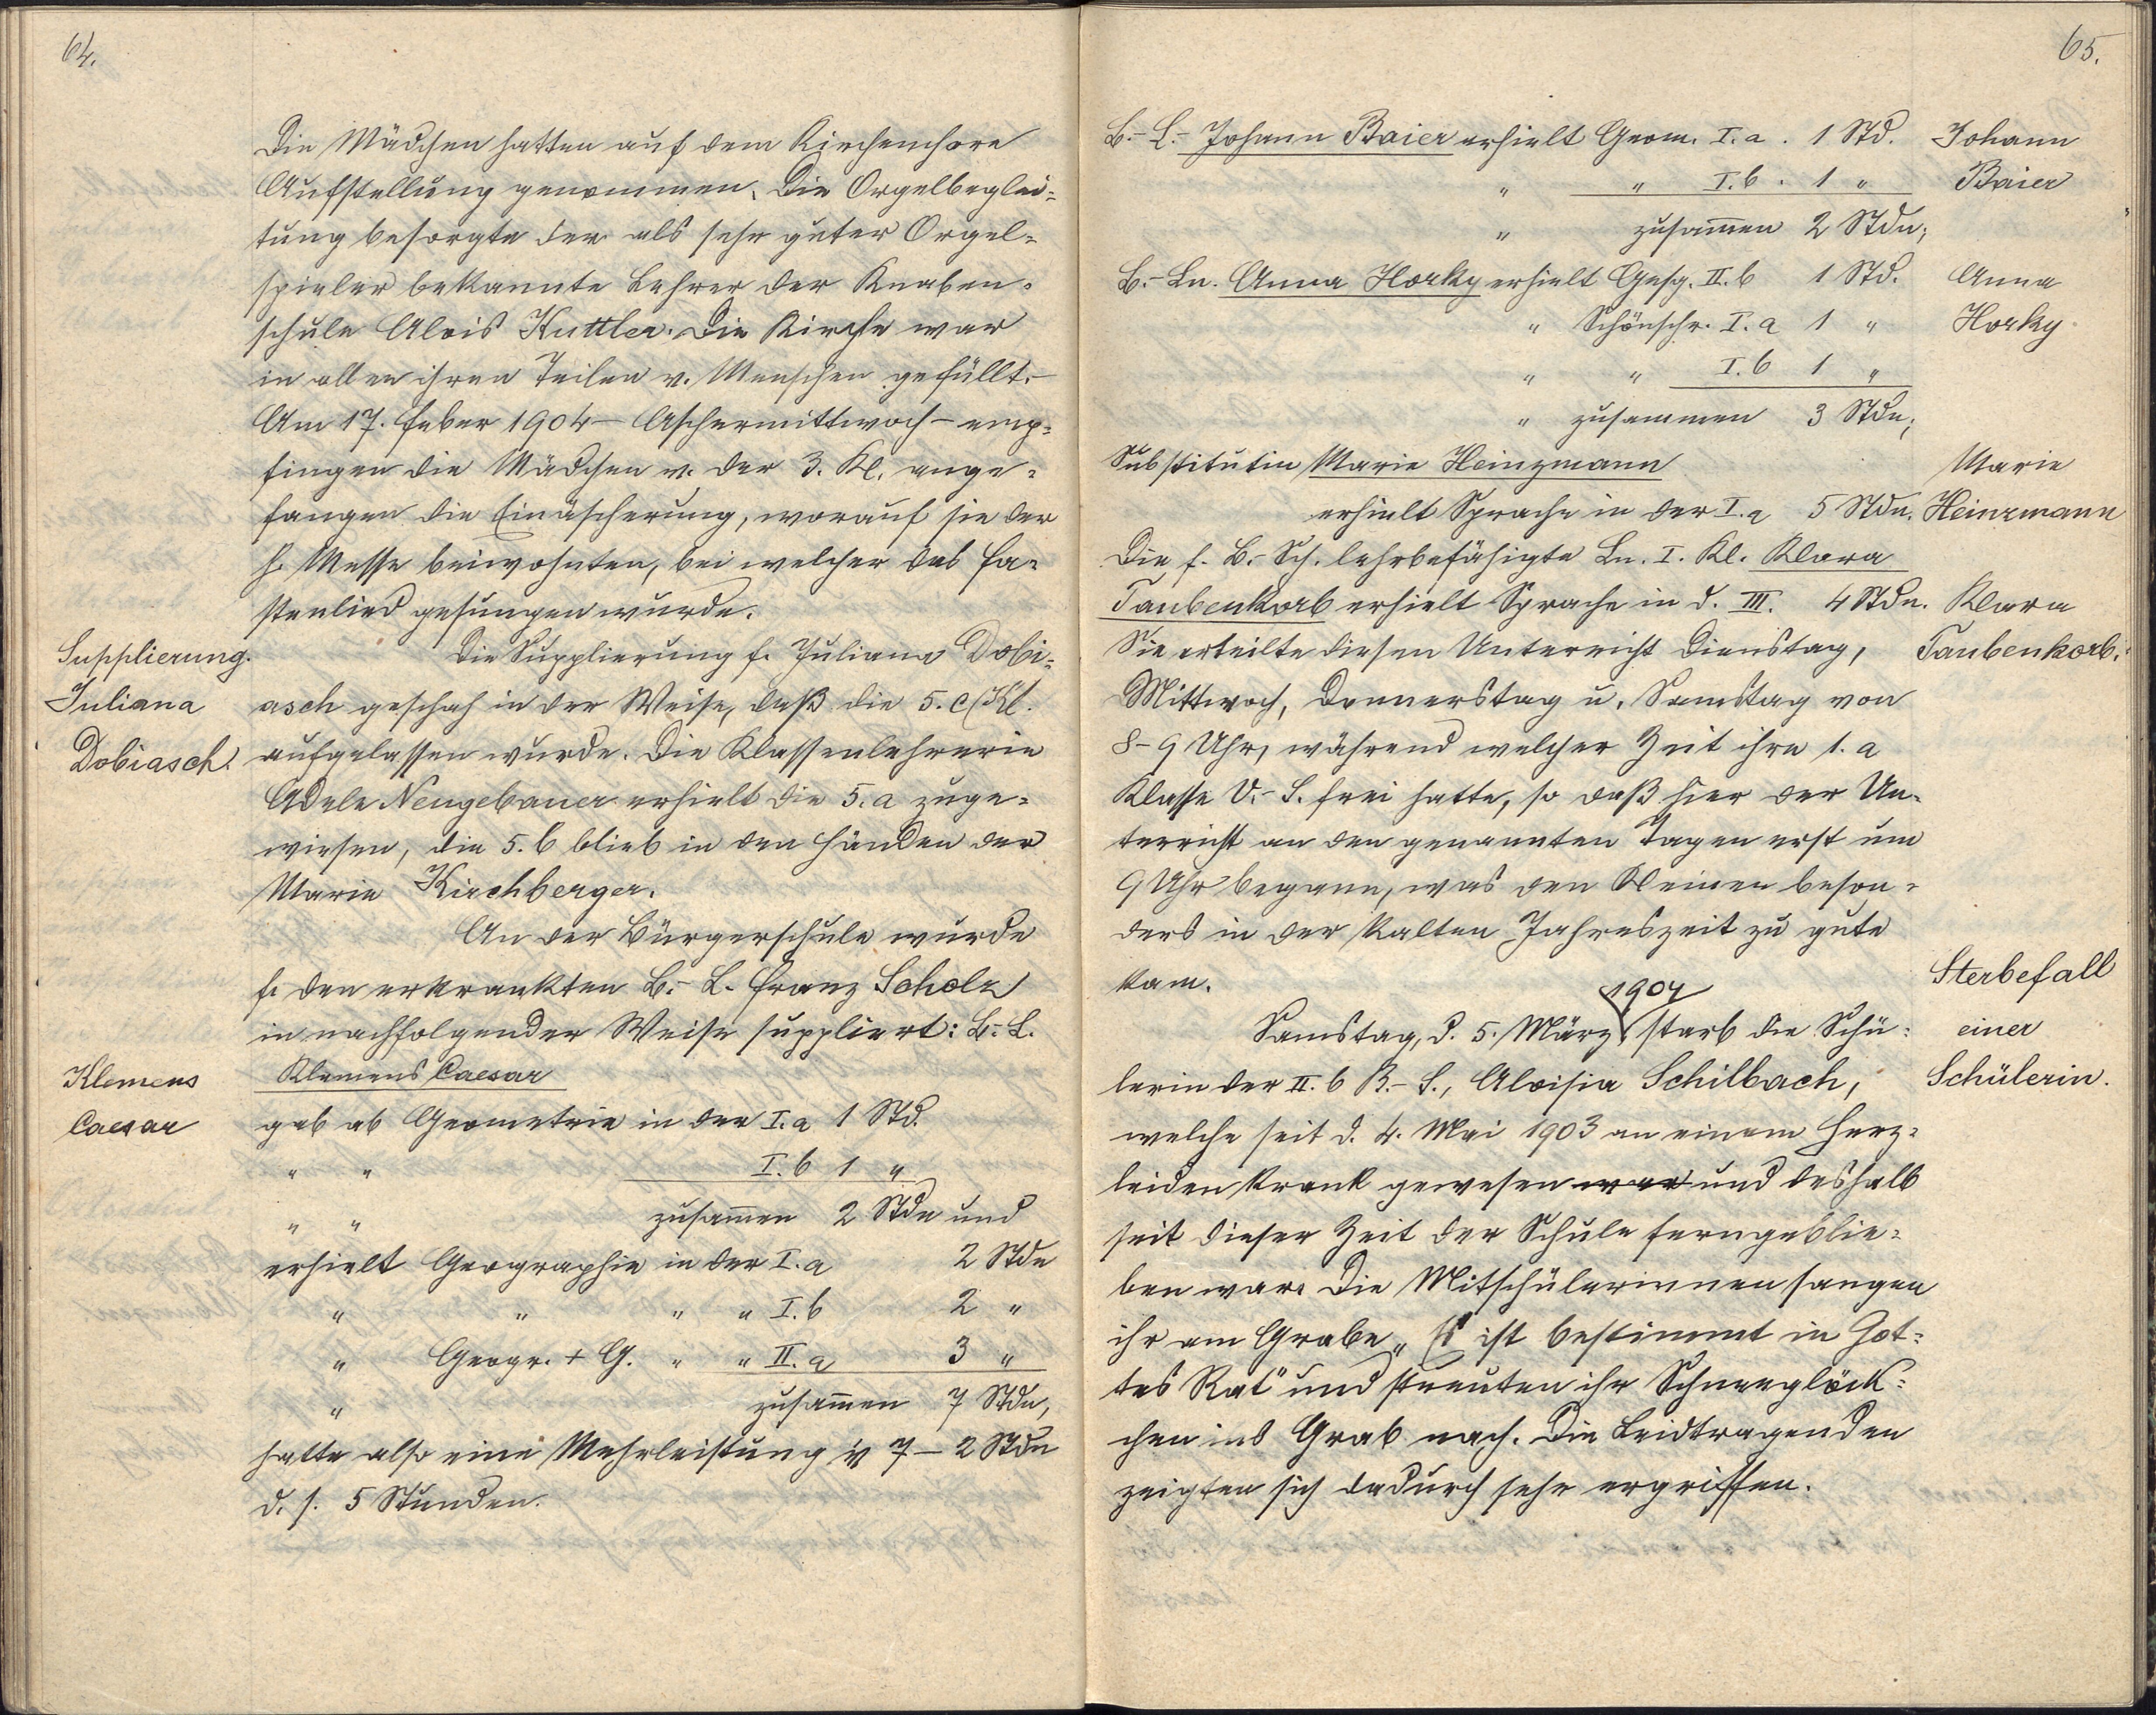 64.
Die Mädchen hatten auf dem Kirchenchore
Aufstellung genommen. Die Orgelbeglei-
tung besorgte der als sehr guter Orgel-
spieler bekannte Lehrer der Knaben-
schule Alois Kuttler. Die Kirche war
in allen ihren Teilen v. Menschen gefüllt.-
Am 17. Feber 1904 - Aschermittwoch - emp-
fingen die Mädchen v. der 3. Kl. ange-
fangen die Einäscherung, worauf sie der
h. Messe beiwohnten, bei welcher das Fa-
stenlied gesungen wurde.
Supplierung.
Juliana
Dobiasch.
Die Supplierung f. Juliana Dobi-
asch geschah in der Weise, daß die 5. c/Kl.
aufgelassen wurde. Die Klassenlehrerin
Adele Neugebauer erhielt die 5. a zuge-
wiesen, die 5. b blieb in den Händen der
Marie Kirchberger.
An der Bürgerschule wurde
f. den erkrankten B.-L. Franz Scholz
in nachfolgender Weise suppliert: B.-L.
Klemens
Caesar
Klemens Caesar
gab ab Geometrie in der I. a 1 Std.
" " I. b 1 "
" " zusam̄en 2 Stdn und
erhielt Geographie in der I. a 2 Stdn
" " " " I. b 2 "
" Geogr. + G. " " II. a 3 "
" zusam̄en 7 Stdn,
hatte also eine Mehrleistung v 7 - 2 Stdn
d. s. 5 Stunden.
65.
B.-L.- Johann Baier erhielt Geom. I. a. 1 Std.
" " I. b. 1 "
" zusam̄en 2 Stdn;
Johann
Baier
B.-Ln. Anna Horky erhielt Gesg. II. b 1 Std.
" Schönschr. I. a 1 "
" " I. b 1 "
" zusammen 3 Stdn;
Anna
Horky.
Substitutin Marie Heinzmann
erhielt Sprache in der I. a 5 Stdn.
Marie
Heinzmann
Die f. B.-Sch. lehrbefähigte Ln. I. Kl. Klara
Taubenkorb erhielt Sprache in d. III. 4 Stdn.
Klara
Taubenkorb.
Sie erteilte diesen Unterricht Dienstag,
Mittwoch, Donnerstag u. Samstag von
8-9 Uhr, während welcher Zeit ihre 1. a
Klasse V.-S. frei hatte, so daß hier der Un-
terricht an den genannten Tagen erst um
9 Uhr begann, was den Kleinen beson-
ders in der kalten Jahreszeit zu gute
kam.
Sterbefall
einer
Schülerin.
1904
Samstag, d. 5. März starb die Schü-
lerin der II. b B.-S., Aloisia Schilbach,
welche seit d. 4. Mai 1903 an einem Herz-
leiden krank gewesen war und deshalb
seit dieser Zeit der Schule ferngeblie-
ben war. Die Mitschülerinnen sangen
ihr am Grabe „Es ist bestimmt in Got-
tes Rat" und streuten ihr Schneeglöck-
chen ins Grab nach. Die Leidtragenden
zeigten sich dadurch sehr ergriffen.